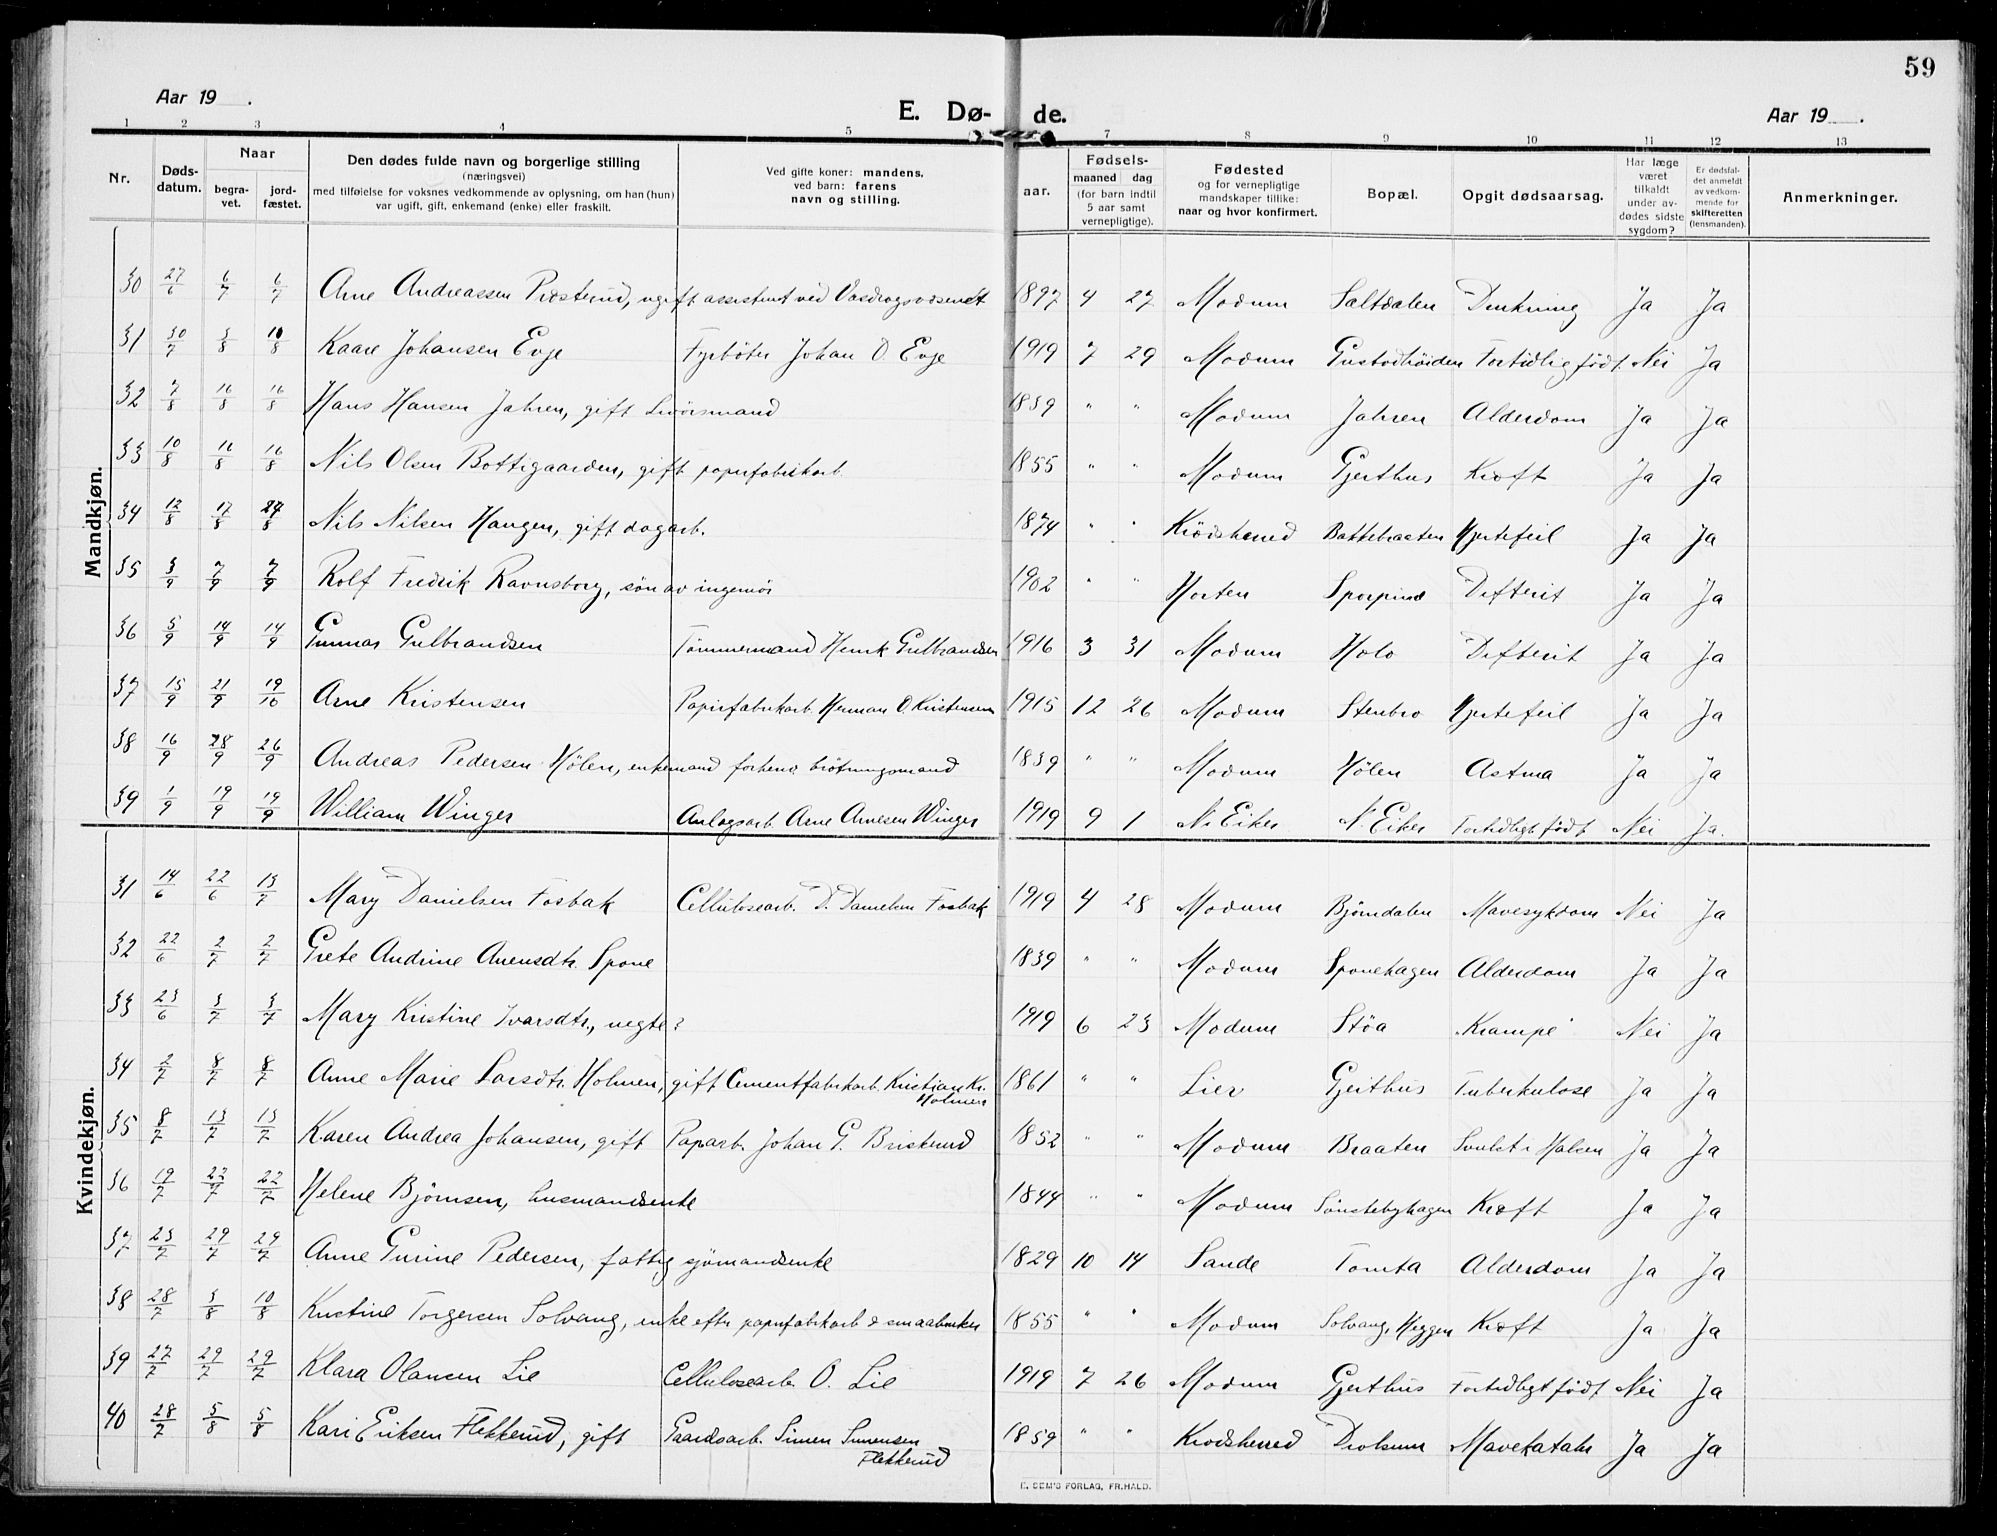 59
Aar 19 .
E. Dø- de.
Aar 19 .
1 2 3 4 5 7 8 9 10 11 12 13
Nr. Døds-datum. Naar begra-vet. jord-fæstet. Den dødes fulde navn og borgerlige stilling (næringsvei) med tilføielse for voksnes vedkommende av oplysning, om han (hun) var ugift, gift, enkemand (enke) eller fraskilt. Ved gifte koner: mandens, ved barn: farens navn og stilling. aar. Fødsels- maaned dag (for barn indtil 5 aar samt vernepligtige). Fødested og for vernepligtige mandskaper tillike: naar og hvor konfirmert. Bopæl. Opgit dødsaarsag. Har læge været tilkaldt under av-dødes sidste sygdom? Er dødsfal-det anmeldt av vedkom-mende for skifteretten (lensmanden). Anmerkninger.
Mandkjøn.
30 27/6 6/7 6/7 Arne Andreassen Præsterud, ugift assistent ved Vasdragsvæsendt 1897 4 27 Modum Saltdalen Drukning Ja Ja
31 30/7 3/8 10/8 Kaare Johansen Evje Fyrbøter Johan O. Evje 1919 7 29 Modum Gustadhøiden Fortidlig født. Nei Ja
32 7/8 16/8 16/8 Hans Hansen Jahren, gift 1839 " " Modum Jahren Alderdom Ja Ja
33 10/8 16/8 16/8 Nils Olsen Bottegaarden, gift papirfabrikarb. 1855 " " Modum Gjerthus Kræft Ja Ja
34 12/8 17/8 Nils Nilsen Haugen, gift dagarb. 1874 " " Krødsherred Battebraaten Hjertefeil Ja Ja
35 3/9 7/9 7/9 Rolf Fredrik Ravnsborg, søn av ingeniør 1902 " " Horten Difterit Ja Ja
36 5/9 14/9 14/9 Gunnar Gulbrandsen Tømmermand Henrik Gulbrandsen 1916 3 31 Modum Holo Difterit Ja Ja
37 15/9 21/9 19/10 Arne Kristensen Papirfabrikarb. Herman O. Kristensen 1915 12 26 Modum Stenbro Hjertefeil Ja Ja
38 16/9 28/9 26/9 Andreas Pedersen Hølen, enkemand forhenv. brøtningsmand 1839 " " Modum Hølen Astma Ja Ja
39 1/9 19/9 19/9 William Winger Anlagsarb. Arne Arnesen Winger 1919 9 1 N. Eiker N. Eiker Fortidligt født Nei Ja.
Kvindekjøn.
31 14/6 22/6 13/7 Mary Danielsen Fosbak Cellulosearb. D. Danielsen Fosbak 1919 4 28 Modum Bjørndalen Mavesykdom Nei Ja
32 22/6 2/7 2/7 Grete Andrine Anensdtr. Spone 1839 " " Modum Sponehagen Alderdom Ja Ja
33 23/6 3/7 3/7 Mary Kristine Ivarsdtr., uegte? 1919 6 23 Modum Støa Krampe Nei Ja
34 2/7 8/7 8/7 Anne Marie Larsdtr. Holmen, gift Cementfabrikarb. Kristian Kr. Holmen 1861 " " Lier Gjeithus Tuberkulose Ja Ja
35 8/7 13/7 13/7 Karen Andrea Johansen, gift Paparb. Johan G. Briskerud 1852 " " Modum Braaten Svulst i Halsen Ja Ja
36 19/7 22/7 22/7 Helene Bjørnsen, husmandsenke 1844 " " Modum Sønstebyhagen Kræft Ja Ja
37 23/7 29/7 29/7 Anne Gurine Pedersen, fattig sjømandsenke 1829 10 14 Sande Tomta Alderdom Ja Ja
38 28/7 3/8 10/8 Kristine Torgersen Solvang, enke efter papirfabrikarb. & smaabruker 1855 " " Modum Solvang, Heggen Kræft Ja Ja
39 27/7 29/7 29/7 Klara Olausen Lie Cellulosearb. O. Lie 1919 7 26 Modum Gjerthus Fortidligt født Nei Ja
40 28/7 5/8 5/8 Kari Eriksen Flekkerud, gift Gaardsarb. Simen Simensen Flekkerud 1859 " " Krødsherred Drolsum Mavekatahr Ja Ja
E. SEM'S FORLAG, FR.HALD.